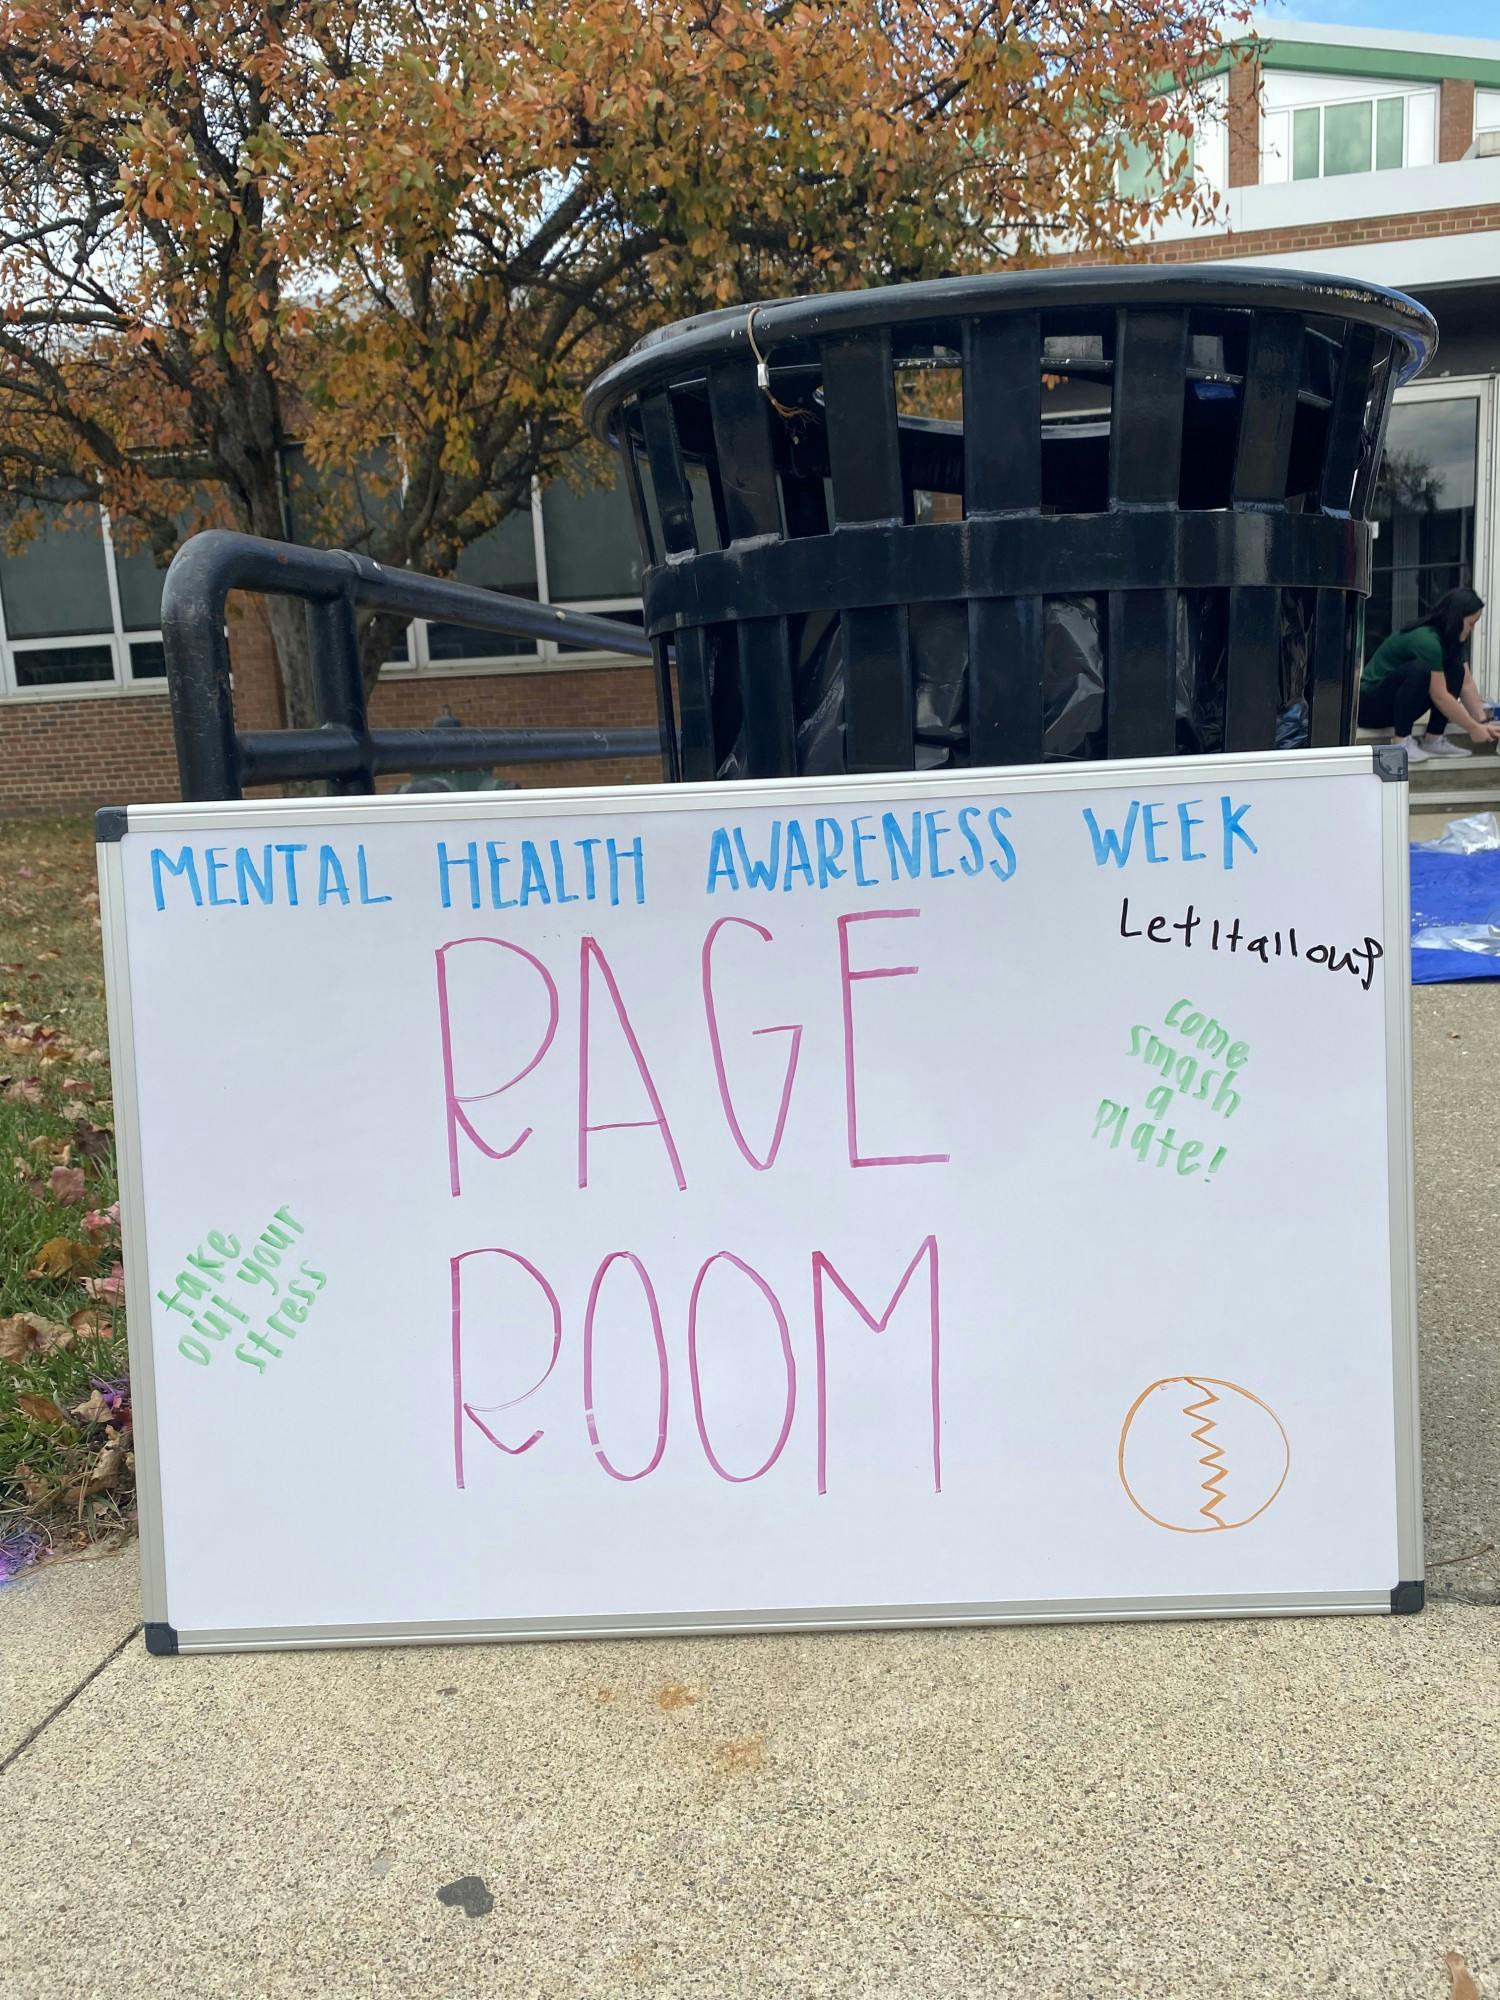 MENTAL HEALTH AWARENESS WEEK
Let It all out
RAGE
come
smash
a
Plate!
take
out your
stress
ROOM